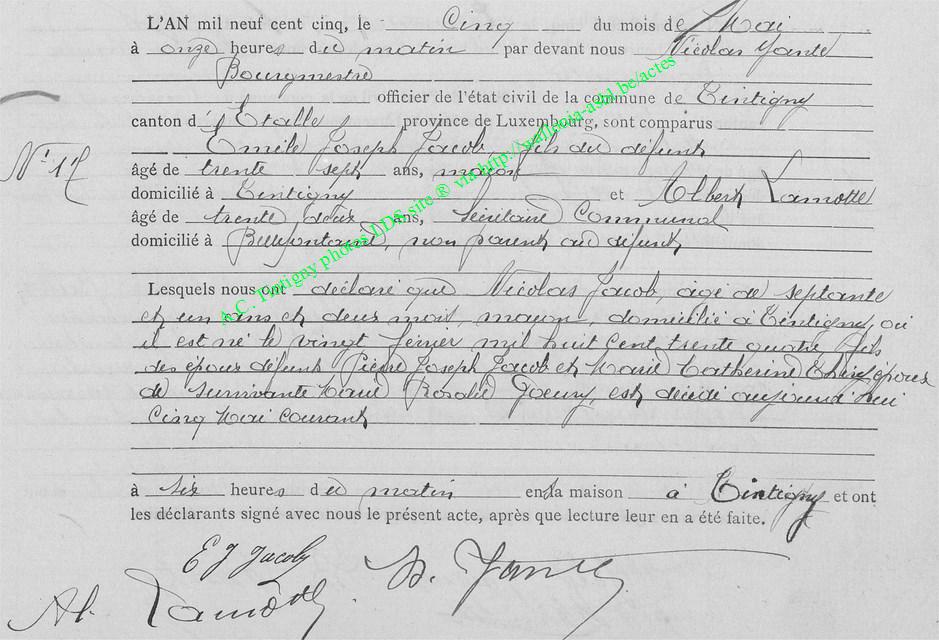 L'AN mil neuf cent cinq, le Cinq du mois de Mai
à onze heures du matin par devant nous Nicolas Yante
Bourgmestre
officier de l'état civil de la commune de Tintigny
canton d'Etalle province de Luxembourg, sont comparus
Emile Joseph Jacob, fils du défunt
N° 17
âgé de trente sept ans, maçon
domicilié à Tintigny et Albert Lamotte
âgé de trente deux ans, Secrétaire Communal
domicilié à Bellefontaine, non parent au défunt,
Lesquels nous ont déclaré que Nicolas Jacob, âgé de septante
et un ans et deux mois, maçon, domicilié à Tintigny, où
il est né le vingt février mil huit Cent trente quatre, fils
des époux défunts Pierre Joseph Jacob et Marie Catherine époux
de survivante Marie Rosalie est décédé aujourd'hui
Cinq Mai courant
à six heures du matin en sa maison à Tintigny et ont
les déclarants signé avec nous le présent acte, après que lecture leur en a été faite.
E J Jacob
N. Yante
Al. Lamotte
A.C. Tintigny photos LDS site ® via http://wallonia-asbl.be/actes